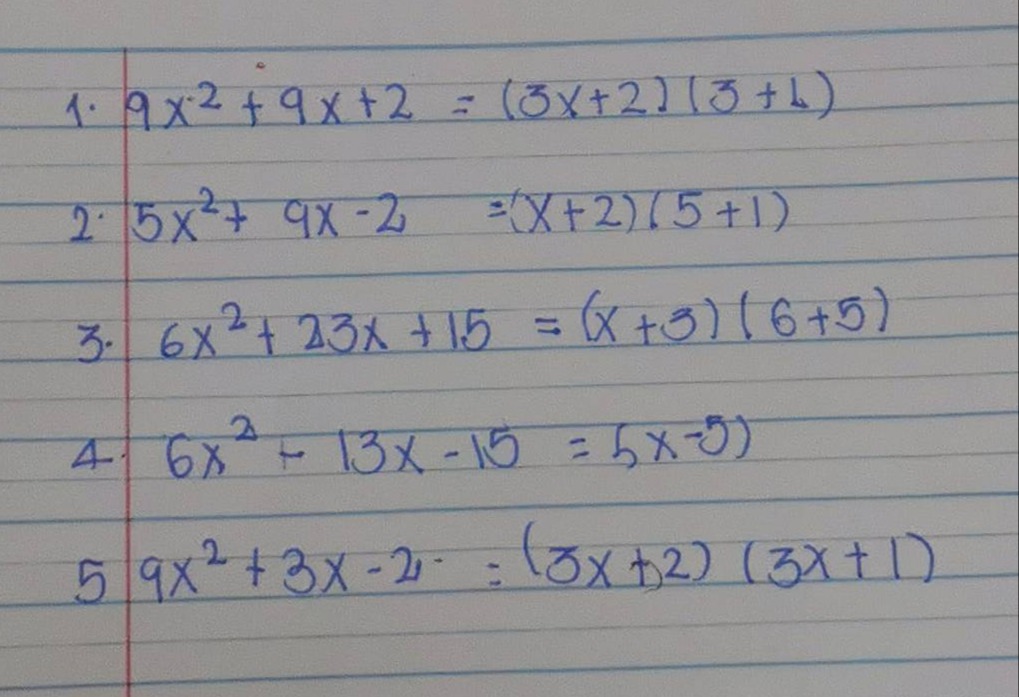 1. 9x² + 9x + 2 = (3x + 2) (3 + 1)
2. 5x² + 9x - 2 = (x + 2) (5 + 1)
3. 6x² + 23x + 15 = (x + 3) (6 + 5)
4. 6x² - 13x - 15 = (x - 5)
5 9x² + 3x - 2 = (3x + 2) (3x + 1)